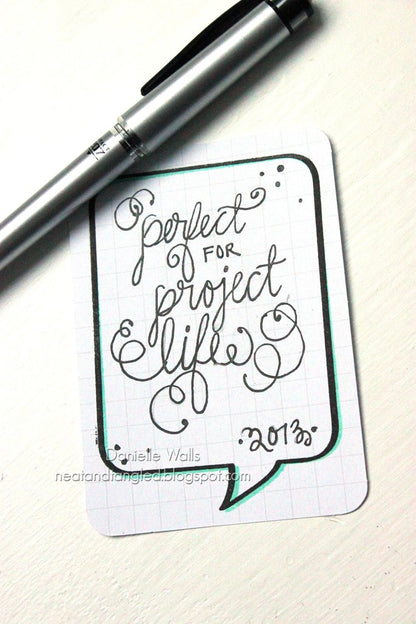 perfect
FOR
project
life
2013
Danielle Walls
neatandtangled.blogspot.com